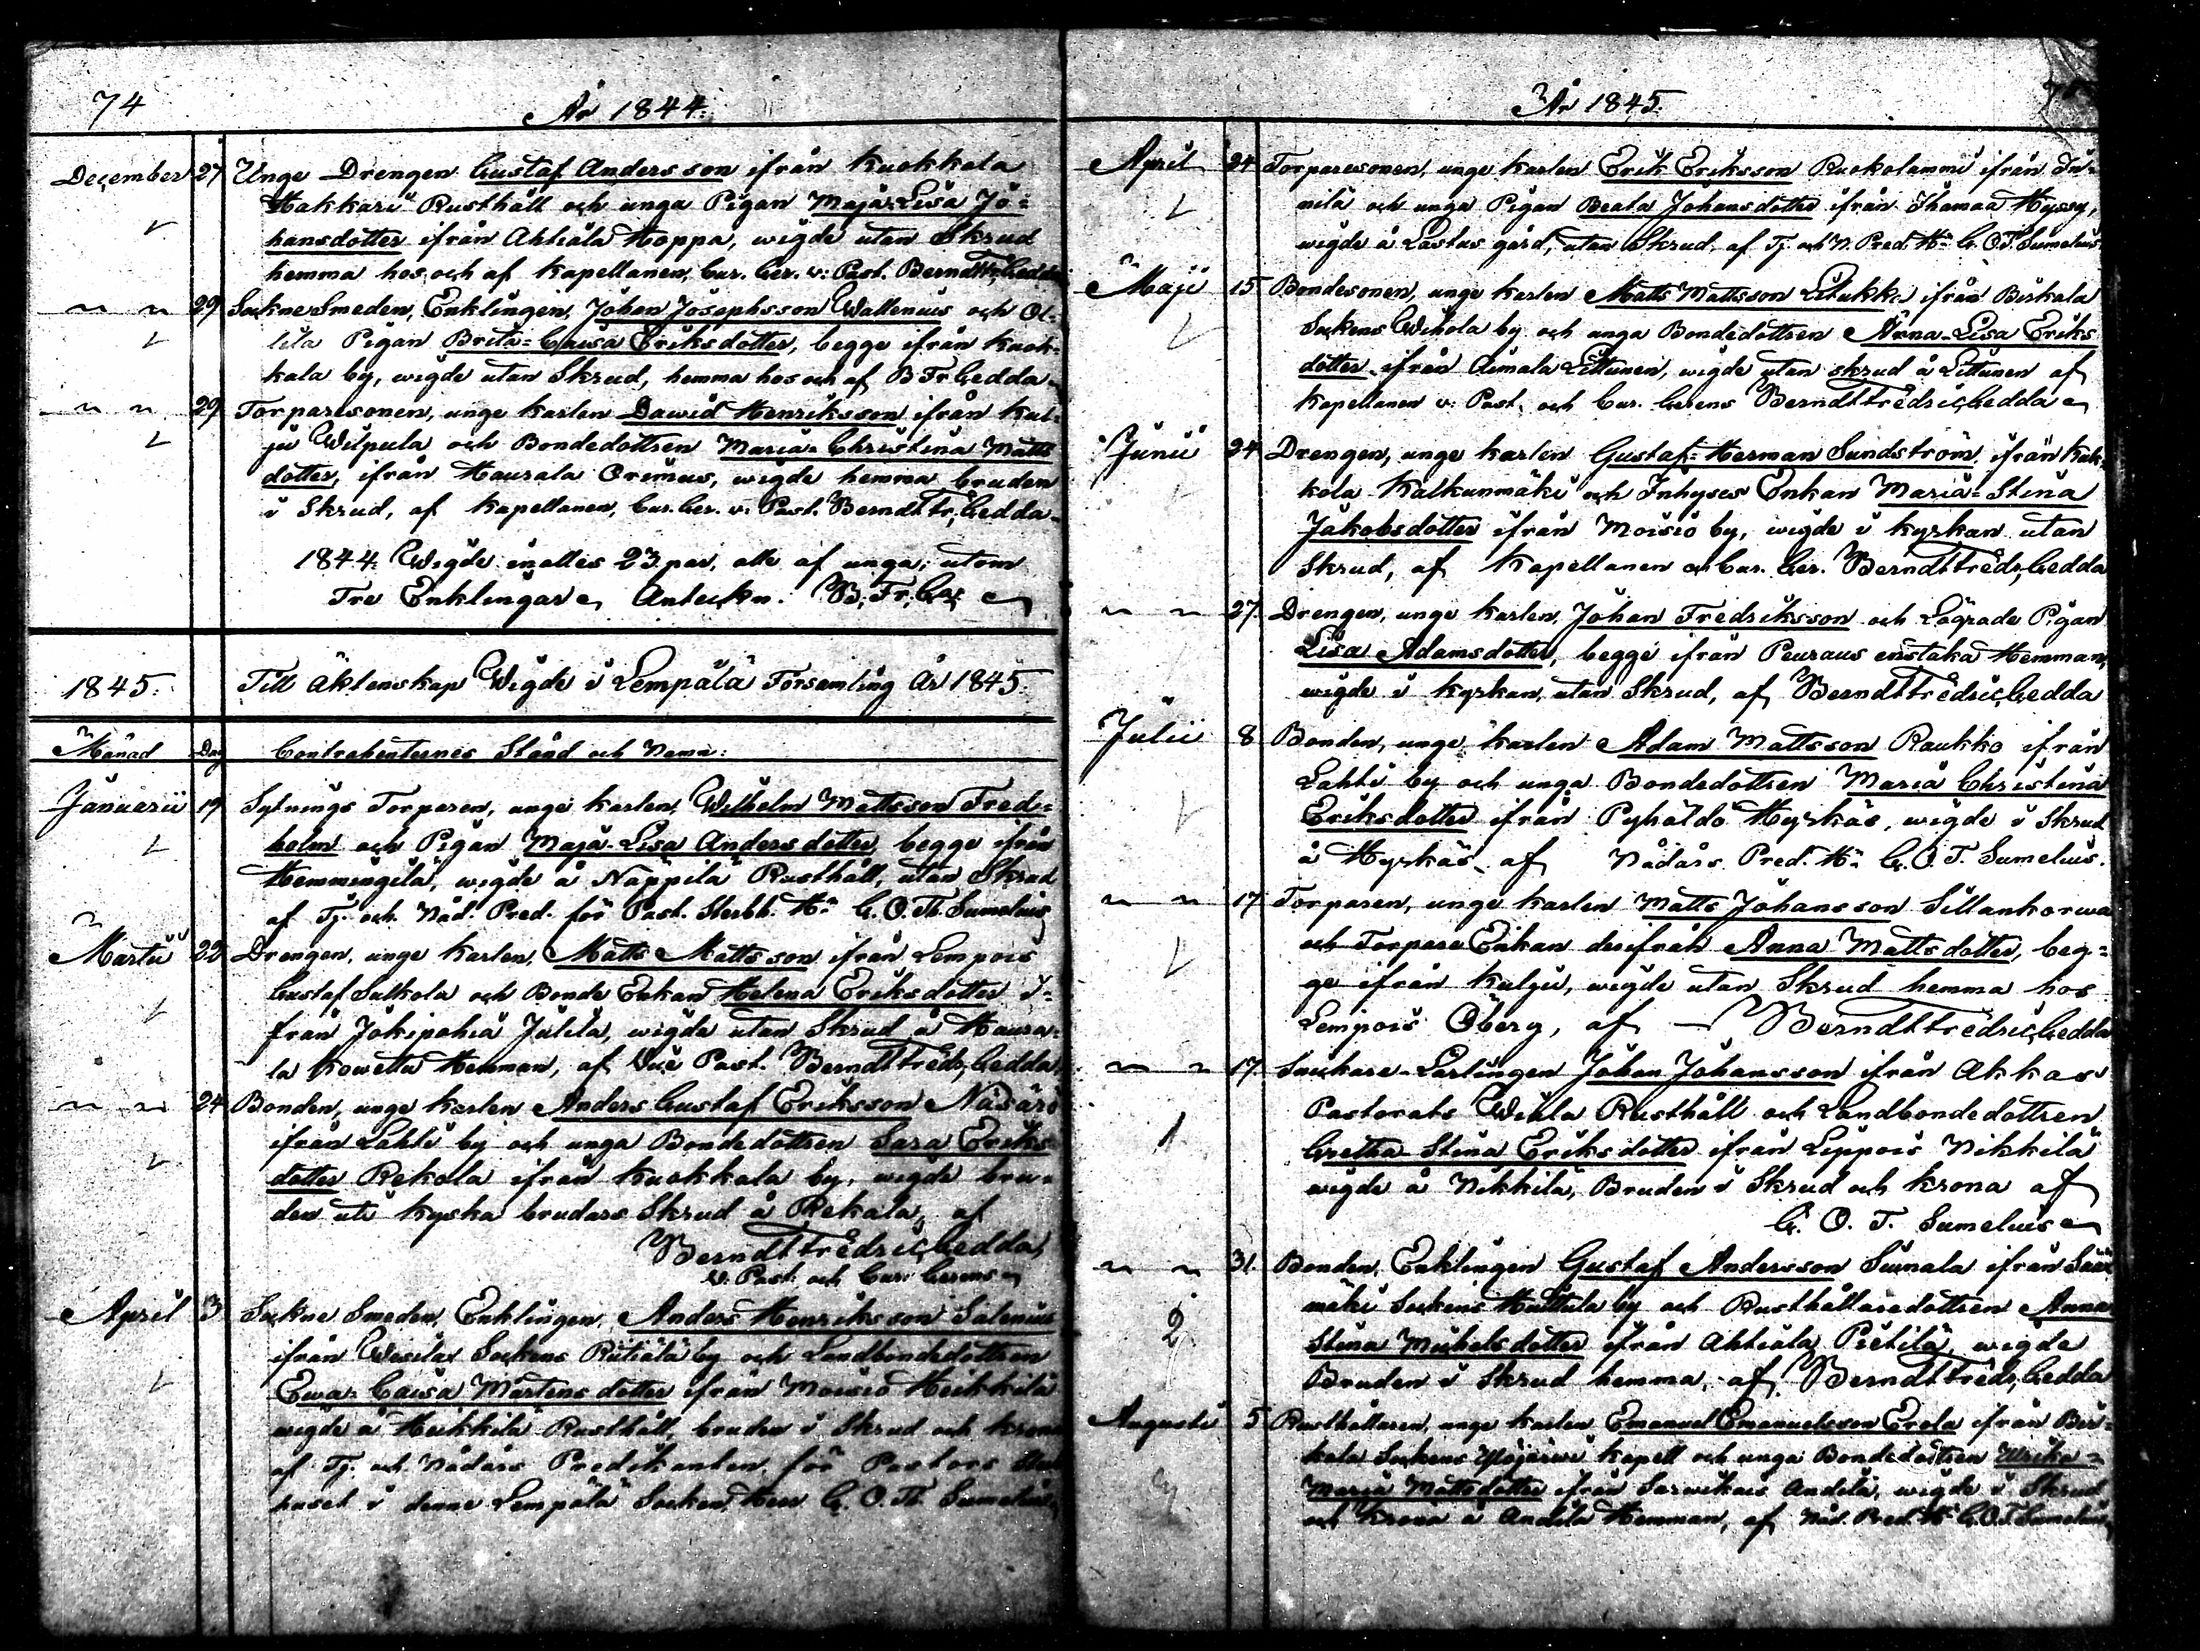 74
År 1844.
December 27 Unge Drengen Gustaf Andersson ifrån Kuokkala
Hakkari Rusthåll och unga Pigan Maja Lisa Jo=
hansdotter ifrån Ahtiala Hoppa, wigde utan Skrud
hemma hos och af Kapellanen, Cur. Ger. v: Past. Berndt Fr. Gedda
~ ~ 29 Sockne Smeden, Enklingen, Johan Josephsson Wallenius och Ol-
lila Pigan Brita=Caisa Eriksdotter, begge ifrån Kuok=
kala by, wigde utan Skrud, hemma hos och af B Fr Gedda
~ ~ 29 Torparesonen, unge karlen Dawid Henriksson ifrån Kul-
ju Wilpula och Bondedottren Maria=Christina Matts
dotter, ifrån Haurala Orimus, wigde hemma bruden
i Skrud, af Kapellanen, Cur. Ger. v: Past. Berndt Fr, Gedda
1844 Wigde inalles 23 par, alle af unga, utom
Tre Enklingar Anteckn. B: Fr: Ga:
1845. Till Äktenskap Wigde i Lempälä Församling År 1845.
Månad Dag Contrahenternes Stånd och Namn:
Januarii 19 Sytnings Torparen, unge karlen, Wilhelm Mattsson Fred=
holm och Pigan Maja-Lisa Andersdotter, begge ifrån
Hemmingilä, wigde å Näppilä Rusthåll, utan Skrud
af Tj. och Nåd. Pred. för Past. Sterbh. Hr G. O. Th. Sumelius
Martii 22 Drengen, unge karlen, Matts Mattsson ifrån Lempois
Gustaf Sulkola och Bonde Enkan Helena Eriksdotter i=
från Jokipohia Julila, wigde utan Skrud å Haura=
la Kowella Hemman, af Vice Past. Berndt Fredr, Gedda
~ ~ 24 Bonden, unge karlen Anders Gustaf Eriksson Näsäri
ifrån Lahti by och unga Bondedottren Sara Eriks=
dotter Rekola ifrån Kuokkala by, wigde bru=
den uti kyska brudars Skrud å Rekala, af
Berndt Fredric Gedda
v. Past. och Cur. Gerens
April 3 Sockne Smeden, Enklingen, Anders Henriksson Salenius
ifrån Wesilax Sockens Rätiälä by och Landbondedottren
Ewa=Caisa Mårtensdotter ifrån Moisio Heikkilä
wigde å Heikkilä Rusthåll, bruden i Skrud och krona
af Tj. och Nådårs Predikanten för Pastors
huset i denne Lempälä Socken, Herr G. O. Th. Sumelius
År 1845.
April 24 Torparesonen, unge karlen Erik Eriksson Ruokolammi ifrån In=
nilä och unga Pigan Beata Johansdotter ifrån Ihamaa Hyssy,
wigde å Lastus gård, utan Skrud, af Tj. och N. Pred. Hr G. O. T. Sumelius
Maji 15 Bondesonen, unge karlen Matts Mattsson Liukka ifrån Birkala
Sockens Wihola by och unga Bondedottren Anna-Lisa Eriks
dotter ifrån Aimala Littunen, wigde utan skrud å Littunen af
Kapellanen v: Past. och Cur. Gerens Berndt Fredric, Gedda
Junii 24 Drengen, unge karlen Gustaf=Herman Sundström, ifrån Kuk-
kola Kalkunmäki och Inhyses Enkan Maria=Stina
Jakobsdotter ifrån Moisio by, wigde i kyrkan utan
Skrud, af Kapellanen och Cur. Ger. Berndt Fredr, Gedda
~ ~ 27 Drengen, unge karlen, Johan Fredriksson och Lägrade Pigan
Lisa Adamsdotter, begge ifrån Peuraus enstaka Hemman,
wigde i kyrkan, utan Skrud, af Berndt Fredric, Gedda
Julii 8 Bonden, unge karlen Adam Mattsson Raukko ifrån
Lahti by och unga Bondedottren Maria Christina
Eriksdotter ifrån Pyhäldö Hyrkäs, wigde i Skrud
å Hyrkäs af Nådårs Pred. Hr G. O. T. Sumelius.
~ ~ 17 Torparen, unge karlen Matts Johansson Sillankorwa
och Torpare Enkan derifrån Anna Mattsdotter, beg=
ge ifrån Kulju, wigde utan Skrud hemma hos
Lempois Öberg, af Berndt Fredric, Gedda
~ ~ 17 Snickare-Lärlingen Johan Johansson ifrån Akkas
1 Pastorats Wiala Rusthåll och Landbondedottren
Gretha Stina Eriksdotter ifrån Lippois Nikkilä
wigde å Nikkilä, Bruden i Skrud och krona af
G. O. T. Sumelius
~ ~ 31 Bonden, Enklingen Gustaf Andersson Suinala ifrån Sääx
2 mäki Sockens Huttula by och Rusthållaredottren Anna
Stina Michelsdotter ifrån Ahtiala Pietilä, wigde
Bruden i Skrud hemma, af Berndt Fredr, Gedda
Augusti 5 Rusthållaren, unge karlen Emanuel Emanuelsson Erola ifrån Bir=
kala Sockens Ylöjärwi Kapell och unga Bondedottren Ulrika=
Maria Mattsdotter ifrån Sarwikais Andila, wigde i Skrud
och krona å Andila Hemman, af Nåd. Pred. Hr G. O. T. Sumelius